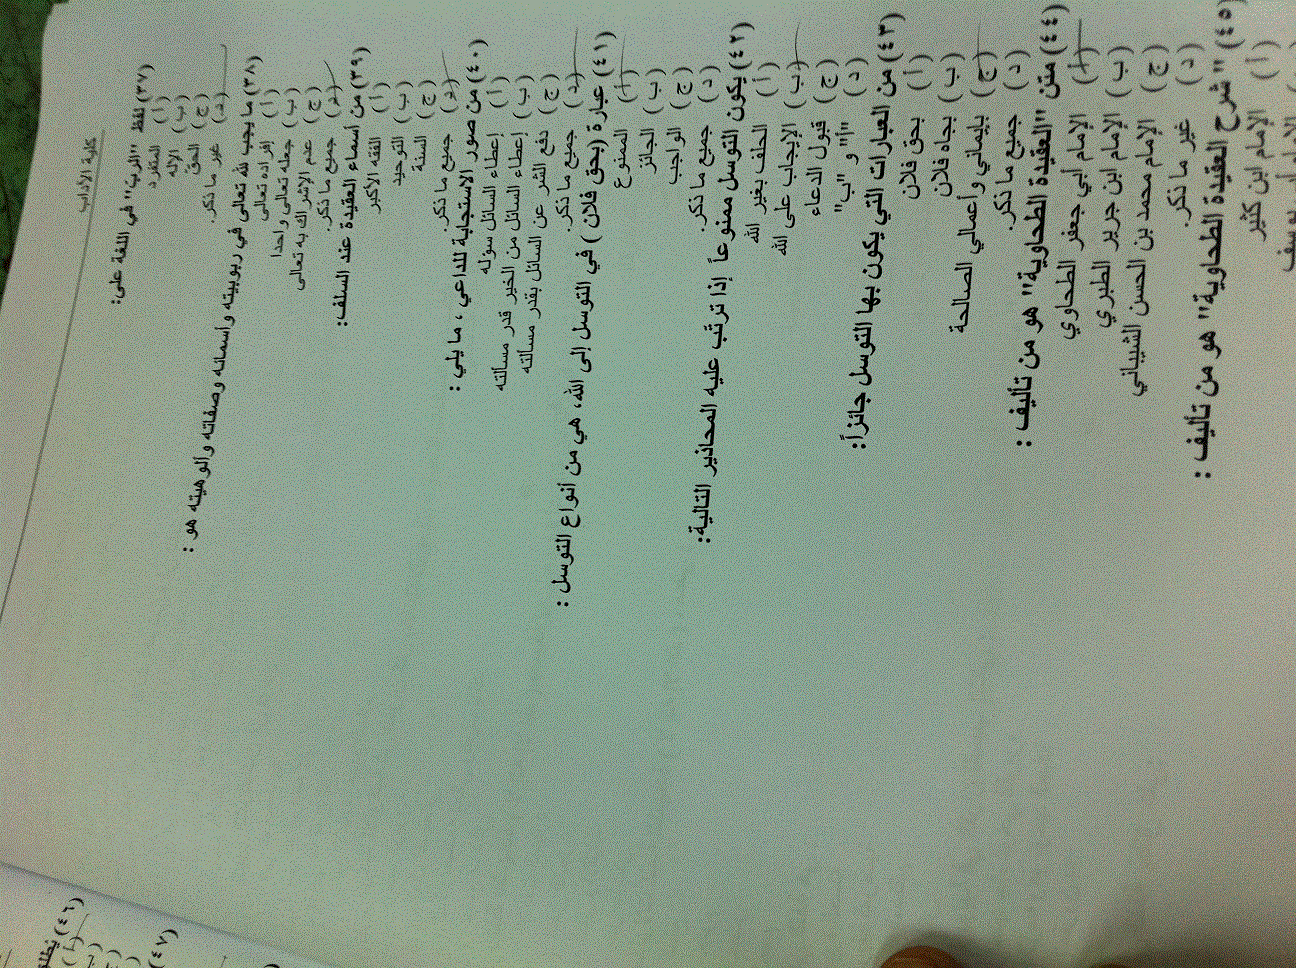 كلية الآداب
(٣٧) لفظ "الرب" في اللغة على:
(أ) المتفرد
(ب) الإله
(ج) الحق
(د) غير ما ذكر.
(٣٨) ما يجب لله تعالى في ربوبيته وأسمائه وصفاته وألوهيته هو :
(أ) إفراده تعالى
(ب) جعله تعالى واحدا
(ج) عدم الإشراك به تعالى
(د) جميع ما ذكر.
(٣٩) من أسماء العقيدة عند السلف:
(أ) الفقه الأكبر
(ب) التوحيد
(ج) السنة
(د) جميع ما ذكر.
(٤٠) من صور الاستجابة للداعي ، ما يلي :
(أ) إعطاء السائل سؤله
(ب) إعطاء السائل من الخير قدر مسألته
(ج) دفع الشر عن السائل بقدر مسألته
(د) جميع ما ذكر.
(٤١) عبارة (بحق فلان ) في التوسل إلى الله، هي من أنواع التوسل :
(أ) الممنوع
(ب) الجائز
(ج) الواجب
(د) جميع ما ذكر.
(٤٢) يكون التوسل ممنوعاً إذا ترتب عليه المحاذير التالية:
(أ) الحلف بغير الله
(ب) الإيجاب على الله
(ج) قبول الدعاء
(د) "أ" و "ب"
(٤٣) من العبارات التي يكون بها التوسل جائزاً:
(أ) بحق فلان
(ب) بجاه فلان
(ج) بإيماني وأعمالي الصالحة
(د) جميع ما ذكر.
(٤٤) متن "العقيدة الطحاوية" هو من تأليف :
(أ) الإمام أبي جعفر الطحاوي
(ب) الإمام ابن جرير الطبري
(ج) الإمام محمد بن الحسن الشيباني
(د) غير ما ذكر.
(٤٥) "شرح العقيدة الطحاوية" هو من تأليف :
(أ) الإمام ابن كثير
(٤٦)
(أ)
(٤٧)